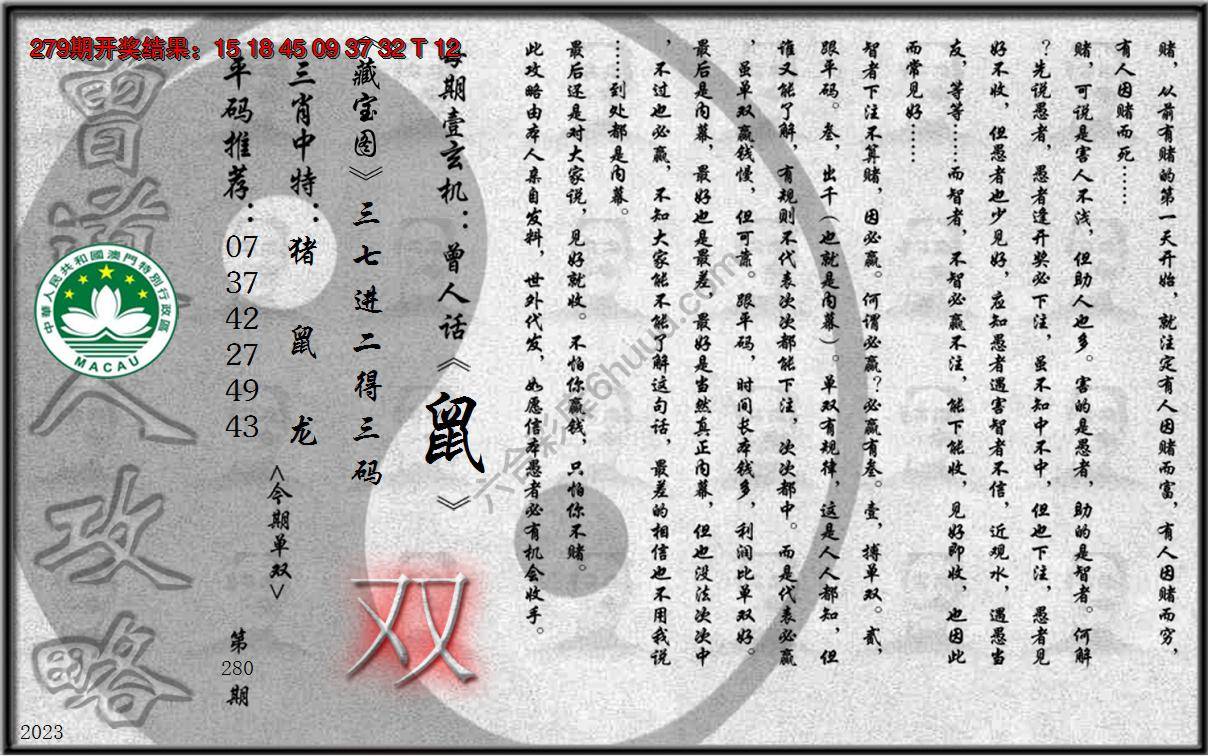 279期开奖结果：15 18 45 09 37 32 T 12
赌，从前有赌的第一天开始，就注定有人因赌而富，有人因赌而穷，
有人因赌而死……
赌，可说是害人不浅，但助人也多。害的是愚者，助的是智者。何解
？先说愚者，愚者逢开奖必下注，虽不知中不中，但也下注，愚者见
好不收，但愚者也少见好，应知愚者遇害智者不信，近观水，遇愚当
友，等等……而智者，不智必赢不注，能下能收，见好即收，也因此
而常见好……
智者下注不算赌，因必赢。何谓必赢？必赢有叁。壹，搏单双。贰，
跟平码。叁，出千（也就是内幕）。单双有规律，这是人人都知，但
谁又能了解，有规则不代表次次都能下注，次次都中。而是代表必赢
，虽单双赢钱慢，但可靠。跟平码，时间长本钱多，利润比单双好。
最后是内幕，最好也是最差，最好是当然真正内幕，但也没法次次中
，不过也必赢，不知大家能不能了解这句话，最差的相信也不用我说
……到处都是内幕。
最后还是对大家说，见好就收。不怕你赢钱，只怕你不赌。
此攻略由本人亲自发料，世外代发，如愿信本愚者必有机会收手。
每期壹玄机：曾人话《鼠》
《藏宝图》三七进二得三码
双
三肖中特：猪 鼠 龙
<今期单双>
平码推荐：07 37 42 27 49 43
第280期
曾道人攻略
中華人民共和國澳門特別行政區
MACAU
六合彩库6huuu.com
2023